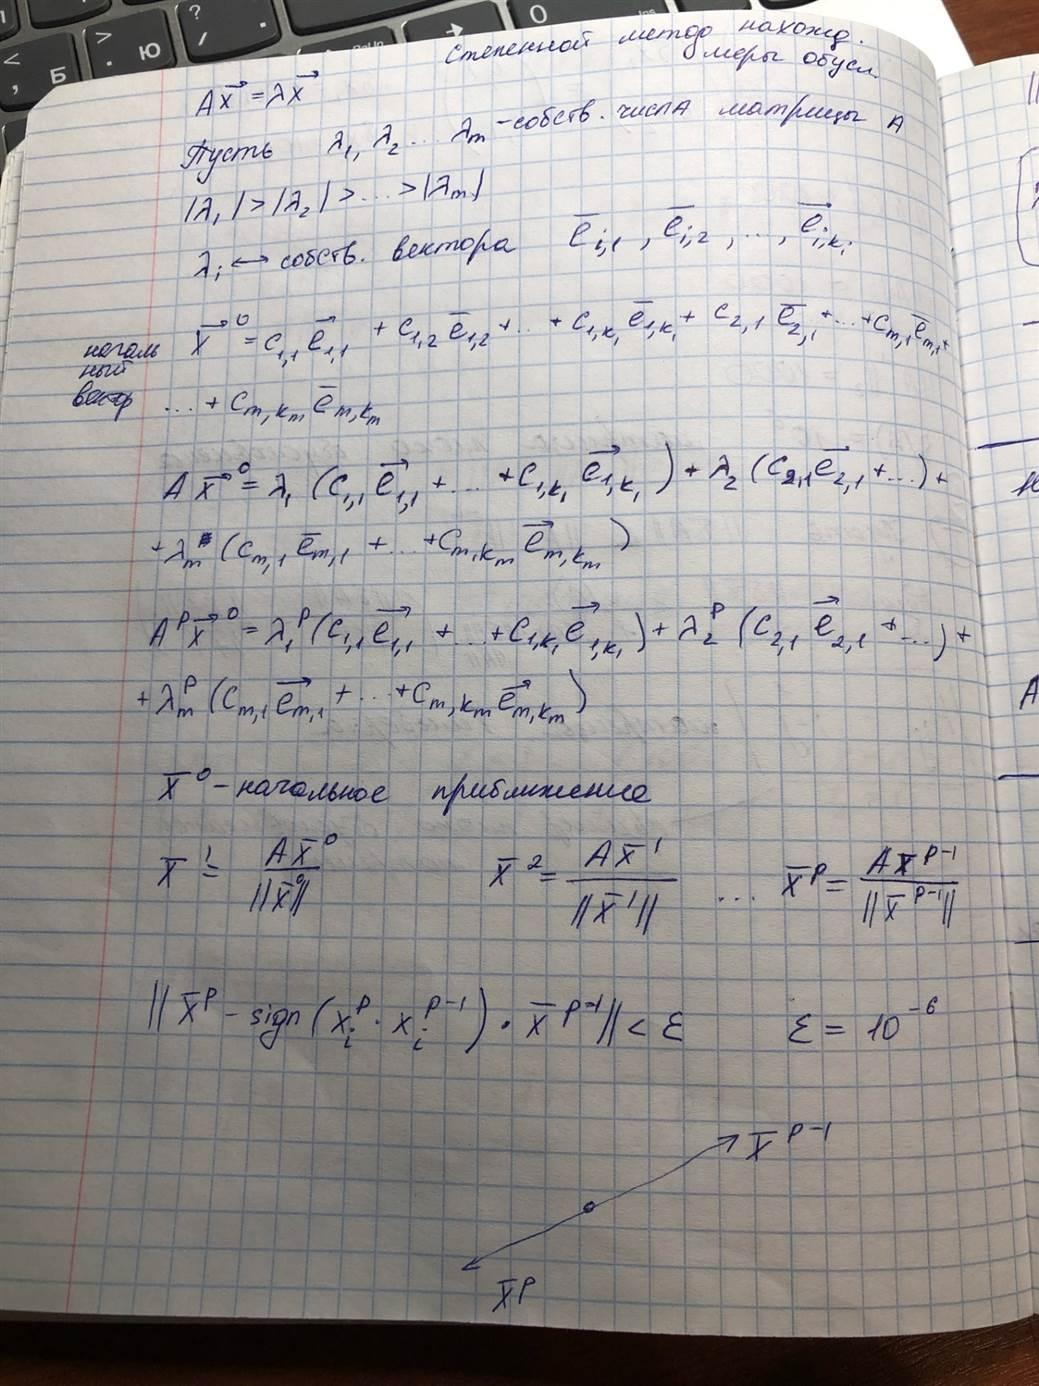 Степенной метод нахожд.
меры обусл.
Ax⃗ = λx⃗
Пусть λ₁, λ₂ ... λₘ – собств. числа матрицы A
|λ₁| > |λ₂| > ... > |λₘ|
λᵢ ↔ собств. вектора e̅_{i,1}, e̅_{i,2}, ..., e⃗_{i,kᵢ}
началь
ный
вектор
x⃗⁰ = c_{1,1} e⃗_{1,1} + c_{1,2} e̅_{1,2} + ... + c_{1,k₁} e̅_{1,k₁} + c_{2,1} e̅_{2,1} + ... + c_{m,1} e̅_{m,1} +
... + c_{m,kₘ} e̅_{m,kₘ}
Ax⃗⁰ = λ₁ (c_{1,1} e⃗_{1,1} + ... + c_{1,k₁} e⃗_{1,k₁}) + λ₂ (c_{2,1} e⃗_{2,1} + ...) +
+ λₘ (c_{m,1} e̅_{m,1} + ... + c_{m,kₘ} e⃗_{m,kₘ})
Aᵖx⃗⁰ = λ₁ᵖ (c_{1,1} e⃗_{1,1} + ... + c_{1,k₁} e⃗_{1,k₁}) + λ₂ᵖ (c_{2,1} e⃗_{2,1} + ...) +
+ λₘᵖ (c_{m,1} e⃗_{m,1} + ... + c_{m,kₘ} e⃗_{m,kₘ})
x̅⁰ – начальное приближение
x̅¹ = Ax̅⁰ / ||x̅⁰|| x̅² = Ax̅¹ / ||x̅¹|| ... x̅ᵖ = Ax̅ᵖ⁻¹ / ||x̅ᵖ⁻¹||
||x̅ᵖ – sign(xᵢᵖ · xᵢᵖ⁻¹) · x̅ᵖ⁻¹|| < ε ε = 10⁻⁶
x̅ᵖ⁻¹
x̅ᵖ